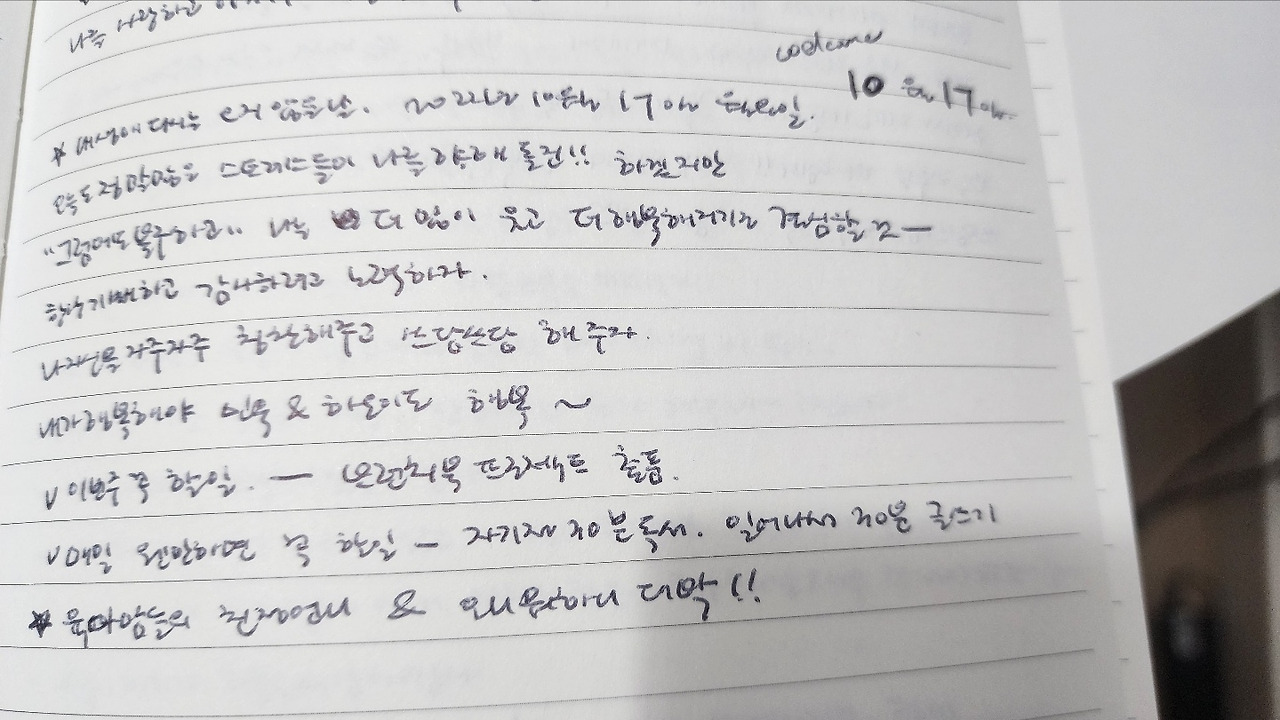 나를 사랑하고
welcome
10월 17일
* 내생에 다시는 오지 않을 날. 2022년 10월 17일 월요일.
오늘도 정말많은 스트레스들이 나를 향해 돌진!! 하겠지만
"그럼에도 불구하고" 나는 더 많이 웃고 더 행복해지기로 결심할 것ㅡ
하고 감사하려고 노력하자.
나자신을 자주자주 칭찬해주고 쓰담쓰담 해주자.
내가 행복해야 민욱 & 하온이도 행복 ~
v 이번주 꼭 할일. ㅡ 프로젝트 출품.
v 매일 웬만하면 꼭 할일 - 자기전 30분 독서. 일어나서 30분 글쓰기
* 육아맘들의 친정언니 & 대박!!